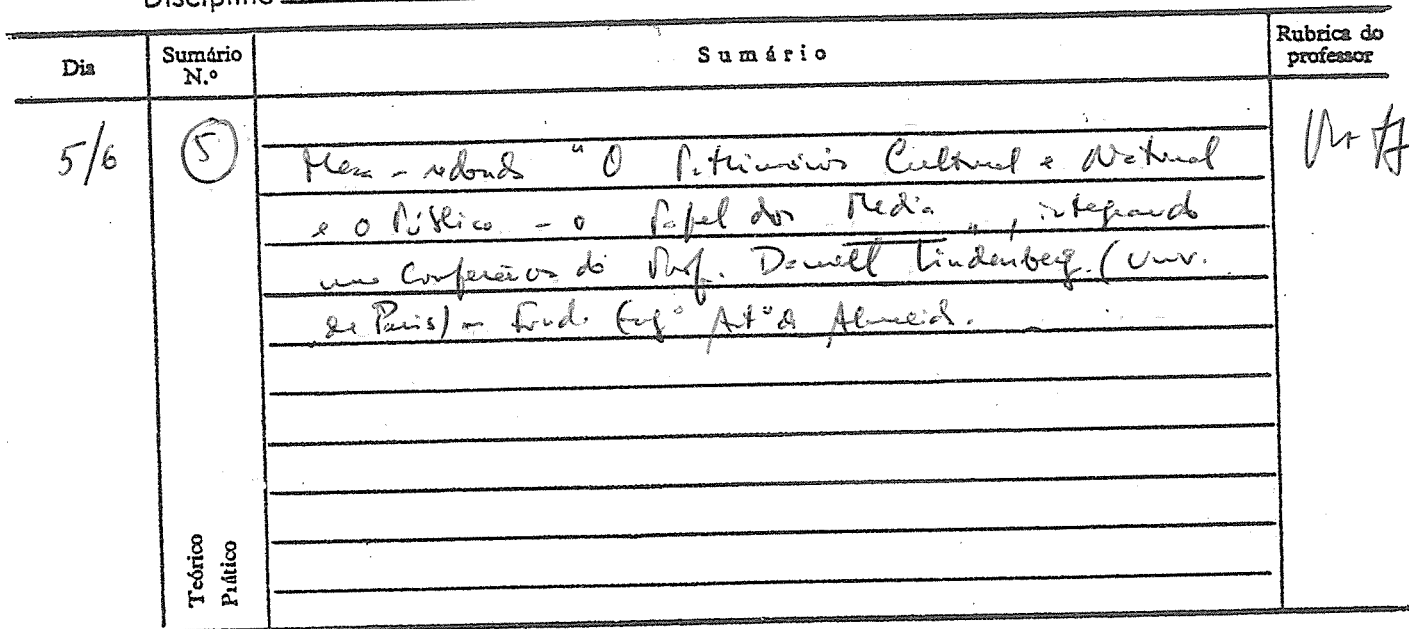 Disciplina
Dia
Sumário N.º
Sumário
Rubrica do professor
5/6
5
Mesa-redonda "O Património Cultural e Natural
e o Público - o Papel dos Media", integrando
uma Conferência do Prof. Daniel Lindenberg (Univ.
de Paris) - Fund. Engº Antº de Almeida.
Teórico
Prático